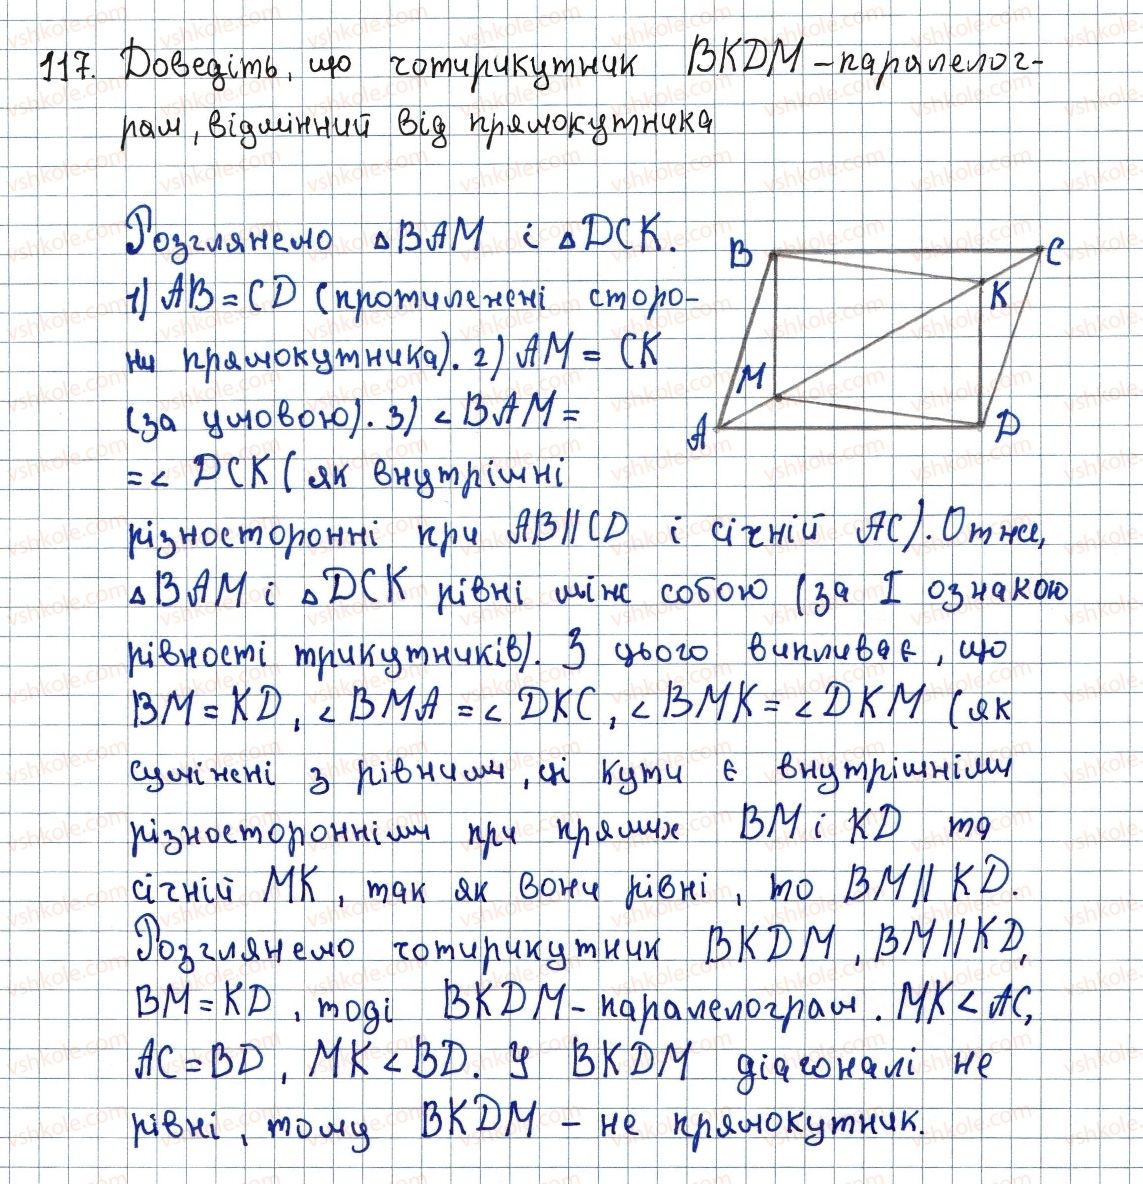 117. Доведіть, що чотирикутник BKDM – паралелог-
рам, відмінний від прямокутника
Розглянемо △BAM і △DCK.
1) AB = CD (протилежні сторо-
ни прямокутника). 2) AM = CK
(за умовою). 3) ∠BAM =
= ∠DCK (як внутрішні
різносторонні при AB || CD і січній AC). Отже,
△BAM і △DCK рівні між собою (за I ознакою
рівності трикутників). З цього випливає, що
BM = KD, ∠BMA = ∠DKC, ∠BMK = ∠DKM (як
суміжні з рівними, ці кути є внутрішніми
різносторонніми при прямих BM і KD та
січній MK, так як вони рівні, то BM || KD.
Розглянемо чотирикутник BKDM, BM || KD,
BM = KD, тоді BKDM – паралелограм. MK < AC,
AC = BD, MK < BD. У BKDM діагоналі не
рівні, тому BKDM – не прямокутник.
B
C
K
M
A
D
vshkole.com